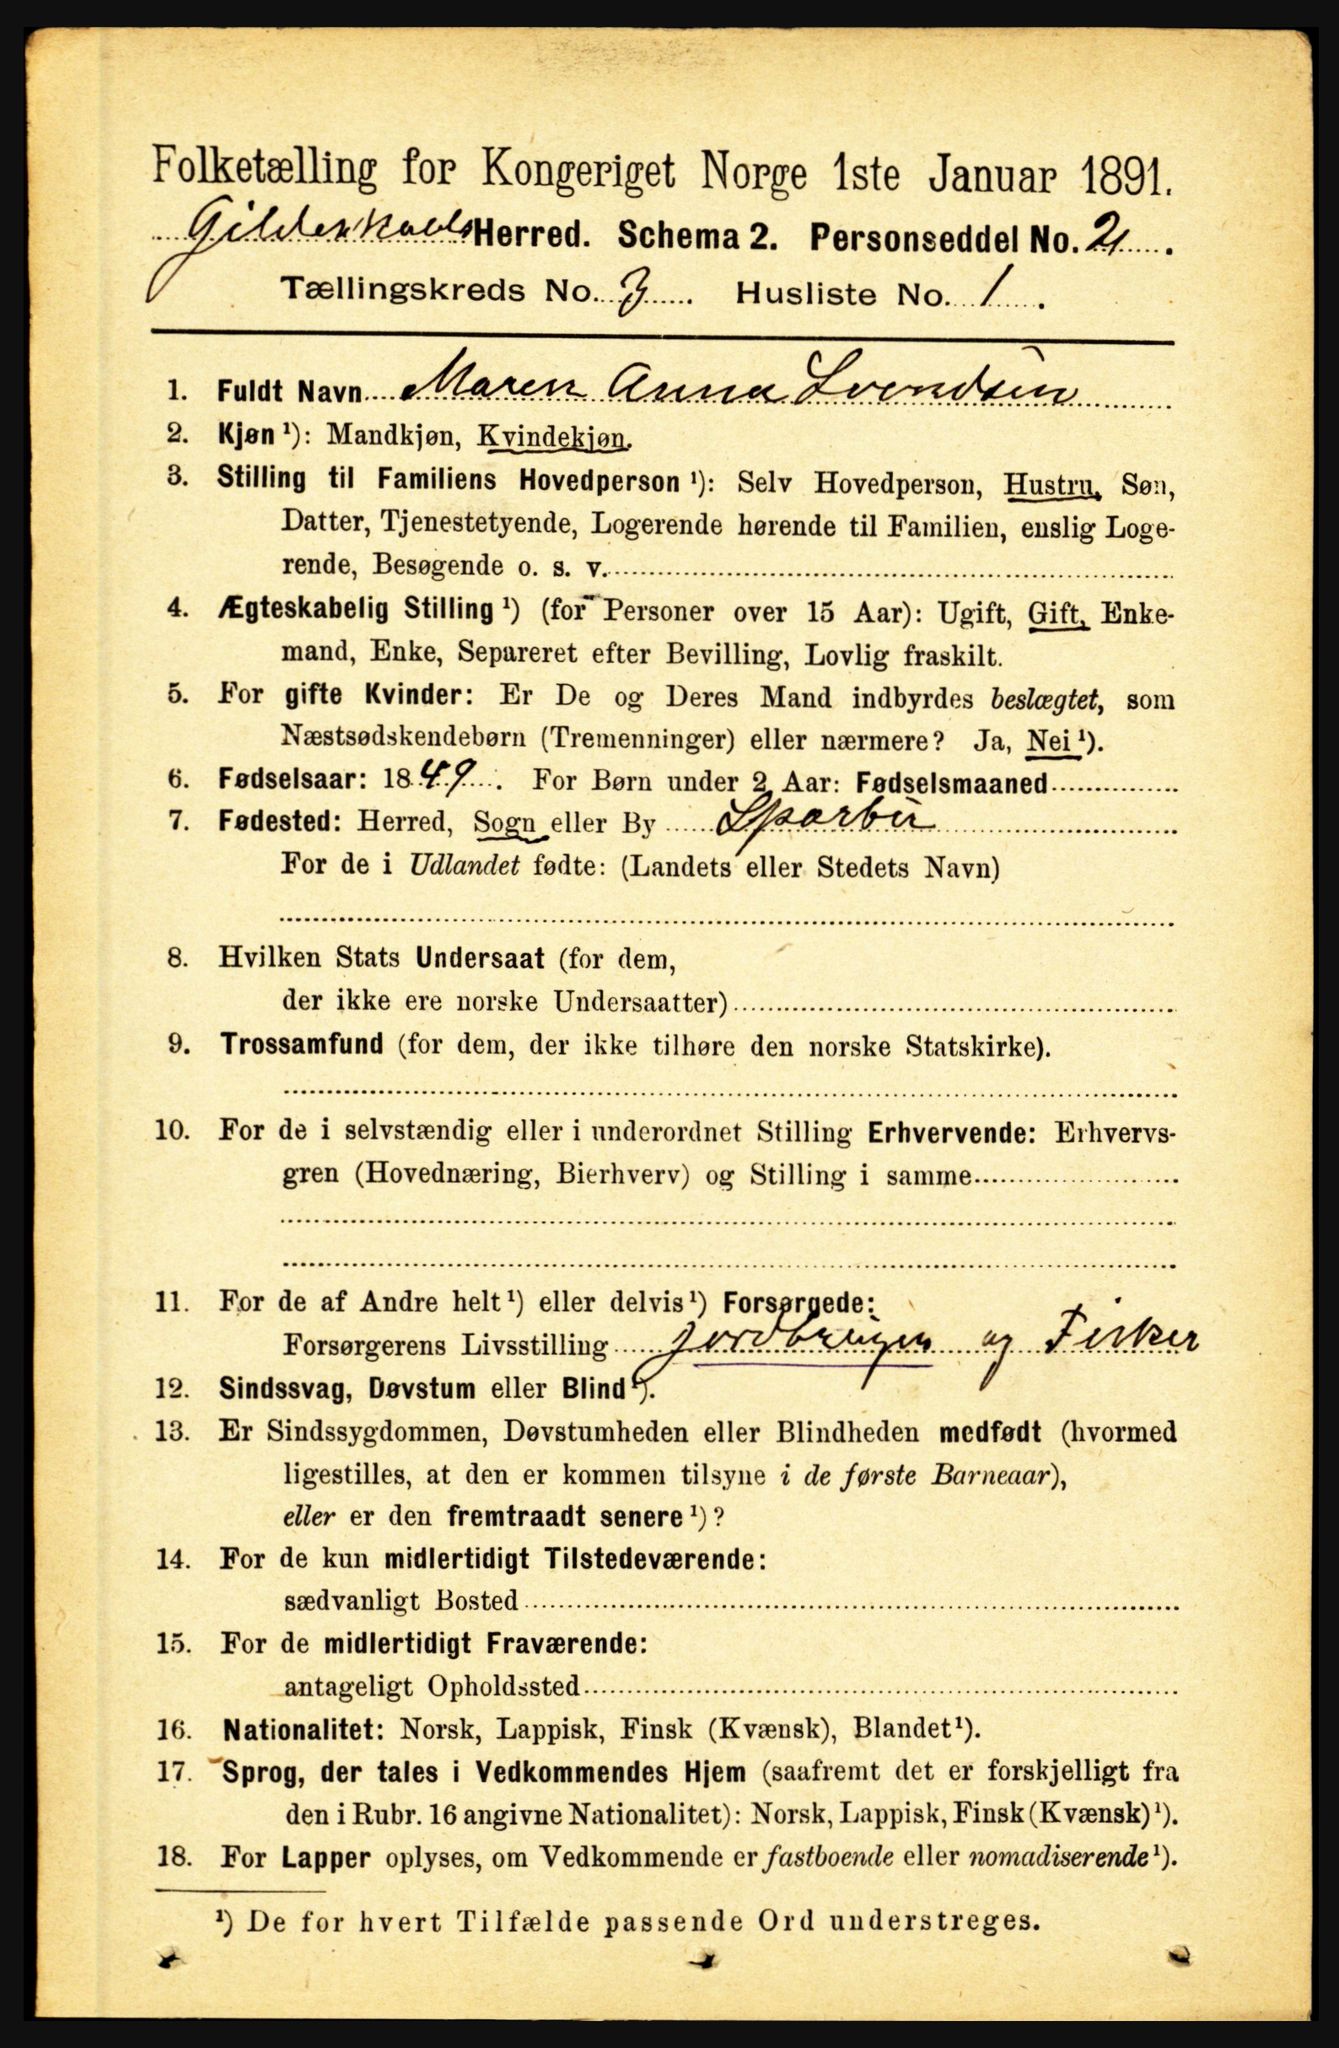 Folketælling for Kongeriget Norge 1ste Januar 1891.
Gildeskaals Herred. Schema 2. Personseddel No. 2.
Tællingskreds No. 3. Husliste No. 1.
1. Fuldt Navn Maren Anna Svendsen
2. Kjøn ¹): Mandkjøn, Kvindekjøn.
3. Stilling til Familiens Hovedperson ¹): Selv Hovedperson, Hustru, Søn,
Datter, Tjenestetyende, Logerende hørende til Familien, enslig Loge-
rende, Besøgende o. s. v.
4. Ægteskabelig Stilling ¹) (for Personer over 15 Aar): Ugift, Gift, Enke-
mand, Enke, Separeret efter Bevilling, Lovlig fraskilt.
5. For gifte Kvinder: Er De og Deres Mand indbyrdes beslægtet, som
Næstsødskendebørn (Tremenninger) eller nærmere? Ja, Nei ¹).
6. Fødselsaar: 1849. For Børn under 2 Aar: Fødselsmaaned
7. Fødested: Herred, Sogn eller By Sparbu
For de i Udlandet fødte: (Landets eller Stedets Navn)
8. Hvilken Stats Undersaat (for dem,
der ikke ere norske Undersaatter)
9. Trossamfund (for dem, der ikke tilhøre den norske Statskirke).
10. For de i selvstændig eller i underordnet Stilling Erhvervende: Erhvervs-
gren (Hovednæring, Bierhverv) og Stilling i samme
11. For de af Andre helt ¹) eller delvis ¹) Forsørgede:
Forsørgerens Livsstilling Jordbruger og Fisker
12. Sindssvag, Døvstum eller Blind ¹).
13. Er Sindssygdommen, Døvstumheden eller Blindheden medfødt (hvormed
ligestilles, at den er kommen tilsyne i de første Barneaar),
eller er den fremtraadt senere ¹)?
14. For de kun midlertidigt Tilstedeværende:
sædvanligt Bosted
15. For de midlertidigt Fraværende:
antageligt Opholdssted
16. Nationalitet: Norsk, Lappisk, Finsk (Kvænsk), Blandet ¹).
17. Sprog, der tales i Vedkommendes Hjem (saafremt det er forskjelligt fra
den i Rubr. 16 angivne Nationalitet): Norsk, Lappisk, Finsk (Kvænsk) ¹).
18. For Lapper oplyses, om Vedkommende er fastboende eller nomadiserende ¹).
¹) De for hvert Tilfælde passende Ord understreges.